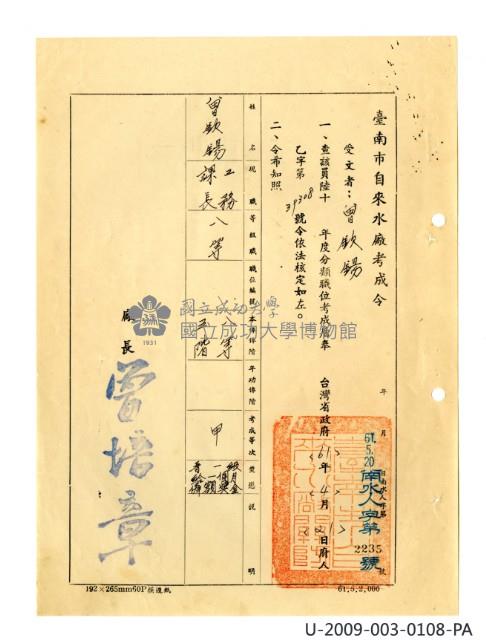 臺南市自來水廠考成令
受文者：曾欽錫
年 月
61.5.20
南水人字第
2235
號
一、查該員陸十 年度分類職位考成層奉 台灣省政府〈61〉年〈4〉月〈21〉日府人
乙字第 39308 號令依法核定如左。
二、令布知照
姓名 現職 職等組 職職位編號 本俸俸階 年功俸階 考成等次 獎懲説明
曾欽錫 工務課長 八等 八等五階 甲
廠長 曾培章
國立成功大學
國立成功大學博物館
1931
192×265mm60P模造紙
61.5.2,000
U-2009-003-0108-PA